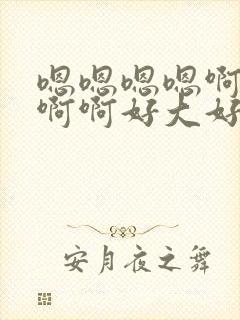 嗯嗯嗯嗯啊
啊啊好大好
安月夜之舞